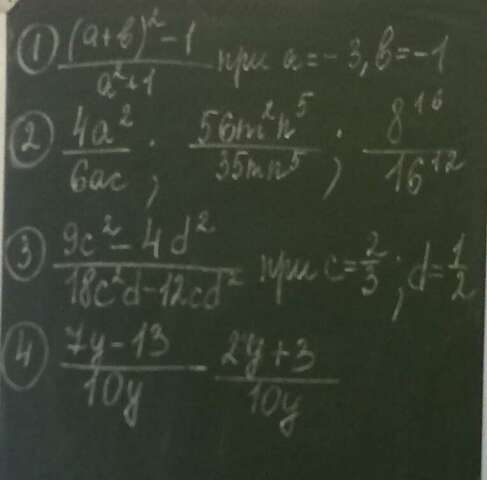 ① (a+b)²-1 / a²+1 при a=-3, b=-1
② 4a² / 6ac ; 56m²n⁵ / 35mn⁵ ; 8¹⁶ / 16¹²
③ 9c²-4d² / 18c²d-12cd² при c=2/3; d=1/2
④ 7y-13 / 10y - 2y+3 / 10y